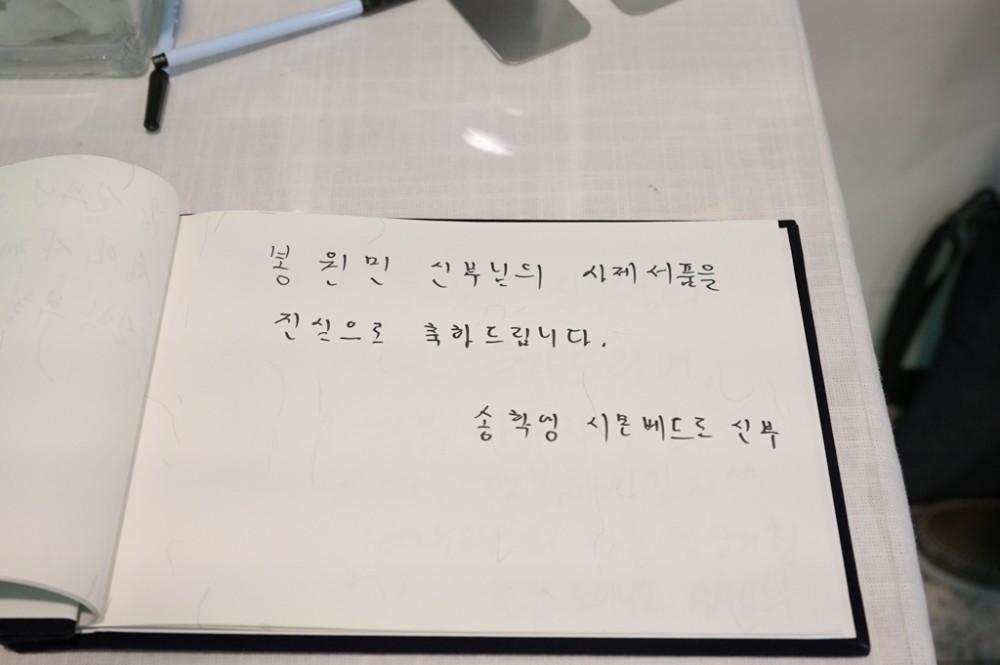 봉 원민 신부님의 사제서품을
진심으로 축하드립니다.
송학영 시몬베드로 신부